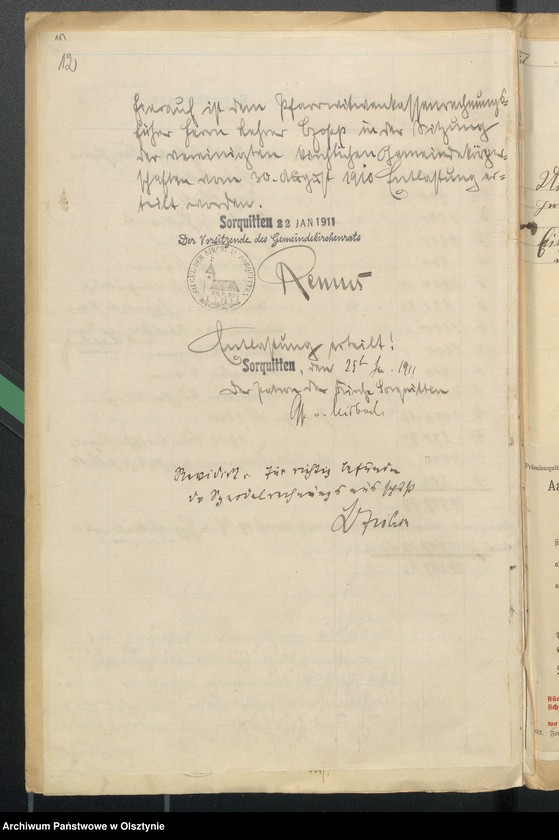 12
Hierauf ist dem Pfarrwitwenkassenrechnungs-
führer Herrn Lehrer in der Sitzung
der vereinigten kirchlichen Gemeindekörper-
schaften vom 30. August 1910 Entlastung er-
teilt worden.
Sorquitten 22 JAN 1911
Der Vorsitzende des Gemeindekirchenrats
Remus
Entlastung erteilt!
Sorquitten, den 25t Ja. 1911
Der Patron der Kirche Sorquitten
v. Mirbach
Revidirt u. für richtig befunden
Archiwum Państwowe w Olsztynie